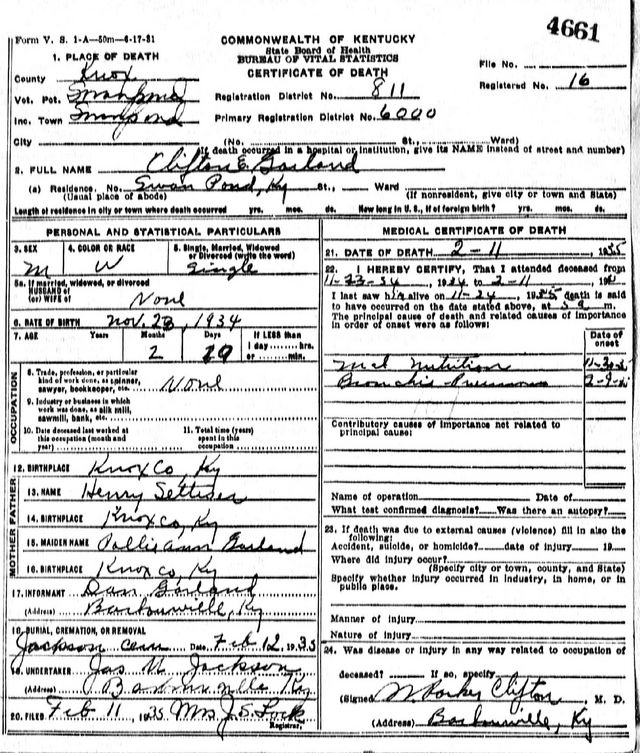 4661
Form V. S. 1-A—50m—6-17-31
COMMONWEALTH OF KENTUCKY
State Board of Health
BUREAU OF VITAL STATISTICS
CERTIFICATE OF DEATH
1. PLACE OF DEATH
County Knox
Vot. Pct. Swanpond
Inc. Town Swanpond
Registration District No. 811
Primary Registration District No. 6000
File No.
Registered No. 16
City (No. St., Ward)
(If death occurred in a hospital or institution, give its NAME instead of street and number)
2. FULL NAME Clifton E. Garland
(a) Residence. No. Swan Pond, Ky St., Ward
(Usual place of abode) (If nonresident, give city or town and State)
Length of residence in city or town where death occurred yrs. mos. ds. How long in U. S., if of foreign birth? yrs. mos. ds.
PERSONAL AND STATISTICAL PARTICULARS
3. SEX M
4. COLOR OR RACE W
5. Single, Married, Widowed or Divorced (write the word) Single
5a. If married, widowed, or divorced
HUSBAND of
(or) WIFE of None
6. DATE OF BIRTH Nov. 23, 1934
7. AGE Years Months 2 Days 19
If LESS than
1 day hrs.
or min.
OCCUPATION
8. Trade, profession, or particular
kind of work done, as spinner,
sawyer, bookkeeper, etc. None
9. Industry or business in which
work was done, as silk mill,
sawmill, bank, etc.
10. Date deceased last worked at
this occupation (month and
year)
11. Total time (years)
spent in this
occupation
12. BIRTHPLACE Knox Co, Ky
MOTHER FATHER
13. NAME Henry
14. BIRTHPLACE Knox co, Ky
15. MAIDEN NAME Pollie Ann Garland
16. BIRTHPLACE Knox co, Ky
17. INFORMANT Dan Garland
(Address) Barbourville, Ky
18. BURIAL, CREMATION, OR REMOVAL
Jackson Cem Date Feb 12, 1935
19. UNDERTAKER Jas M. Jackson
(Address) Barbourville Ky
20. FILED Feb 11, 1935 Mrs J. S. Lock
Registrar.
MEDICAL CERTIFICATE OF DEATH
21. DATE OF DEATH 2-11 1935
22. I HEREBY CERTIFY, That I attended deceased from
11-23-34, 1934 to 2-11, 19
I last saw h alive on 11-24, death is said
to have occurred on the date stated above, at m.
The principal cause of death and related causes of importance
in order of onset were as follows:
Date of
onset
Mal Nutrition
Bronchis Pneumonia 2-9-
Contributory causes of importance not related to
principal cause:
Name of operation Date of
What test confirmed diagnosis? Was there an autopsy?
23. If death was due to external causes (violence) fill in also the
following:
Accident, suicide, or homicide? date of injury 19
Where did injury occur?
(Specify city or town, county, and State)
Specify whether injury occurred in industry, in home, or in
public place.
Manner of injury
Nature of injury
24. Was disease or injury in any way related to occupation of
deceased? If so, specify
(Signed) Clifton M. D.
(Address) Barbourville, Ky